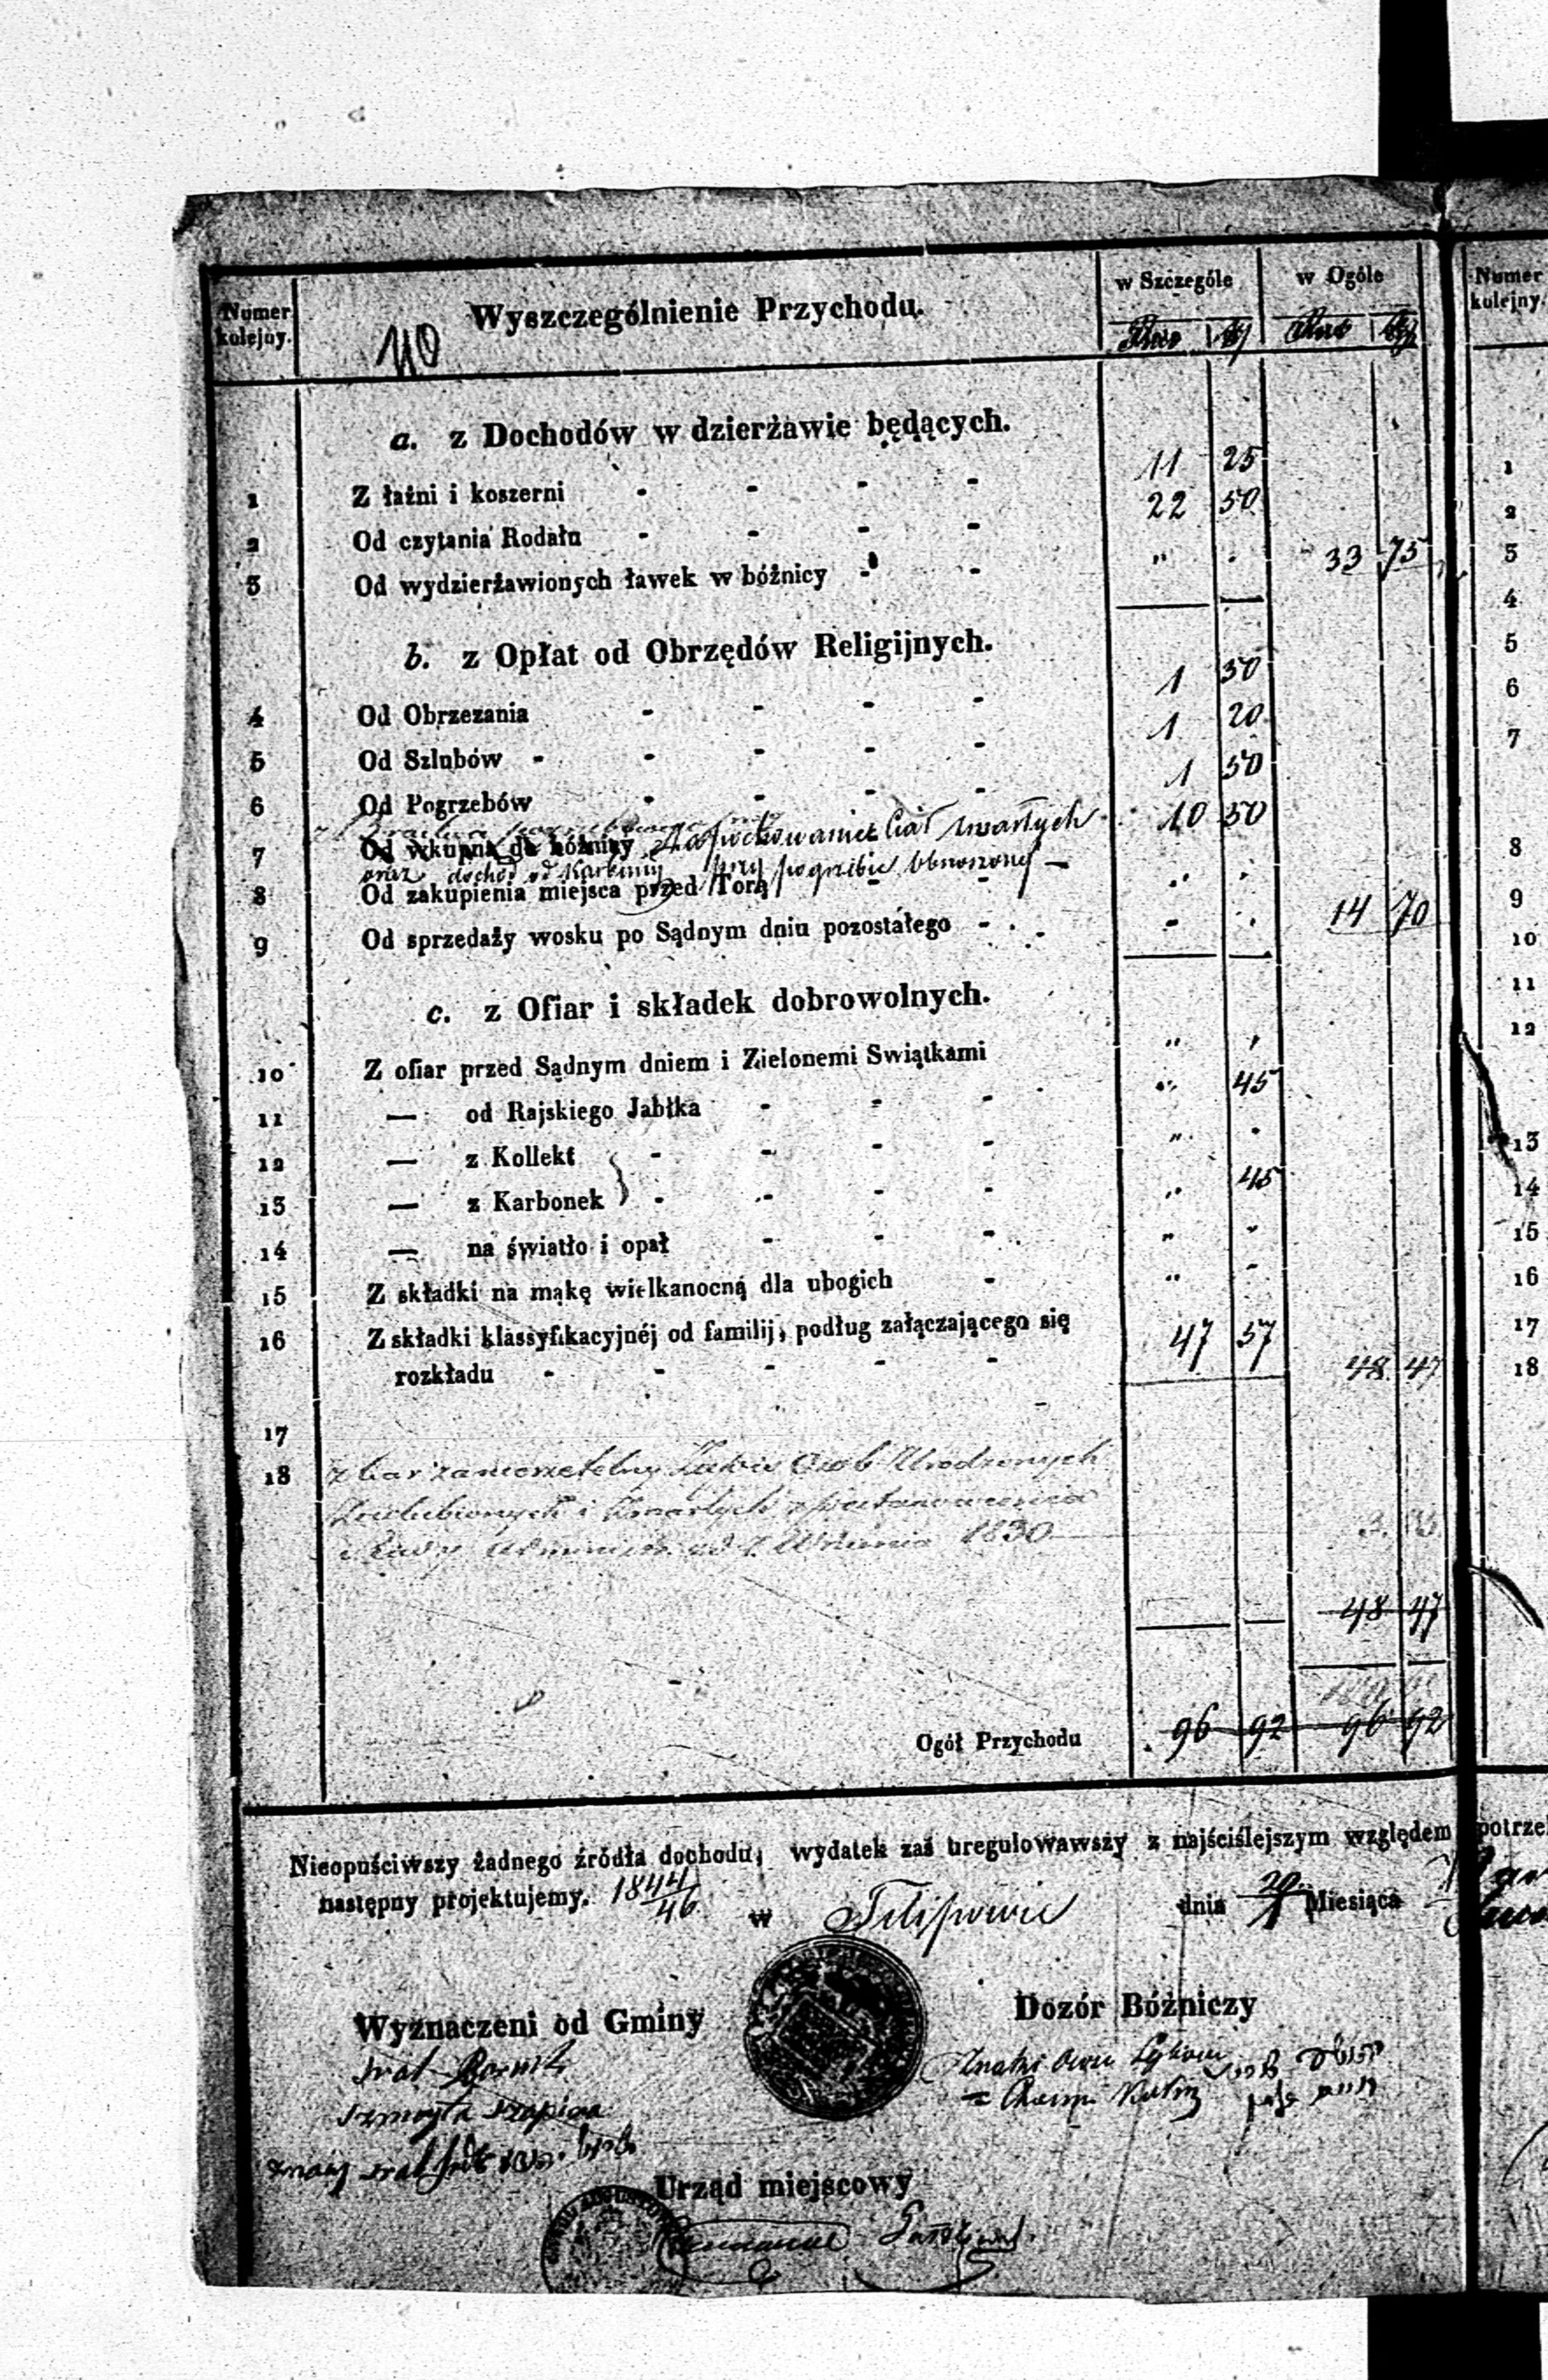 Numer kolejny.
Wyszczególnienie Przychodu.
w Szczególe
w Ogóle
Numer kolejny.
110
a. z Dochodów w dzierżawie będących.
1 Z łaźni i koszerni - - - - 11 25
2 Od czytania Rodału - - - - 22 50
3 Od wydzierżawionych ławek w bóżnicy - - „ . 33 75
b. z Opłat od Obrzędów Religijnych.
4 Od Obrzezania - - - - 1 50
5 Od Szlubów - - - - - 1 20
6 Od Pogrzebów - - - - 1 50
7 Od wkupna do bóżnicy ciał zmarłych 10 50
oraz dochód od Karbony przy pogrzebie obnoszony —
8 Od zakupienia miejsca przed Torą - - „ .
9 Od sprzedaży wosku po Sądnym dniu pozostałego - - - . 14 70
c. z Ofiar i składek dobrowolnych.
10 Z ofiar przed Sądnym dniem i Zielonemi Swiątkami „ .
11 — od Rajskiego Jabłka - - - „ 45
12 — z Kollekt - - - - „ .
13 — z Karbonek - - - - „ 45
14 — na światło i opał - - - „ „
15 Z składki na mąkę wielkanocną dla ubogich - „ -
16 Z składki klassyfikacyjnéj od familij, podług załączającego się
rozkładu - - - - - 47 57 48 47
17
18
Osób Urodzonych
Zaślubionych i Zmarłych
1830
48 47
Ogół Przychodu 96 92 96 92
Nieopuściwszy żadnego źródła dochodu, wydatek zaś uregulowawszy z najściślejszym względem potrze
następny projektujemy. 1844/46 w Filipowie dnia Miesiąca
Wyznaczeni od Gminy
Dozór Bóżniczy
Urząd miejscowy
1
2
3
4
5
6
7
8
9
10
11
12
13
14
15
16
17
18